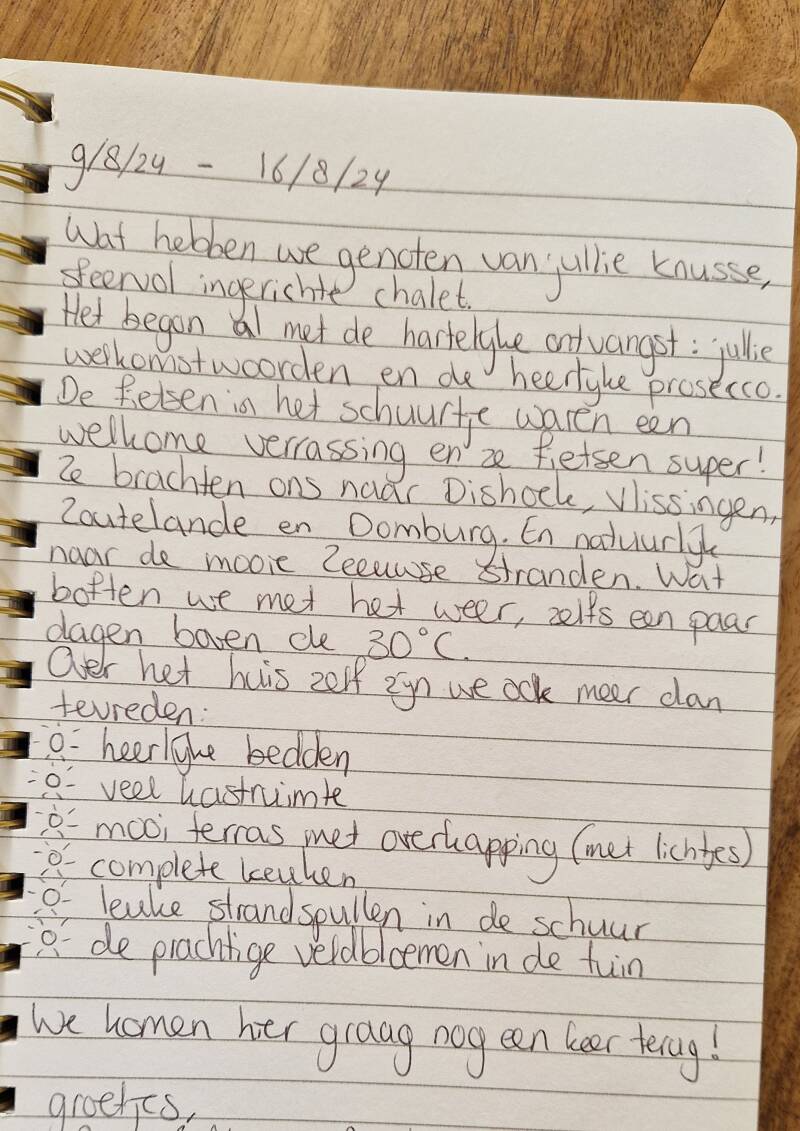 9/8/24 - 16/8/24
Wat hebben we genoten van jullie knusse,
sfeervol ingerichte chalet.
Het began al met de hartelyke ontvangst: jullie
welkomstwoorden en de heerlyke prosecco.
De fietsen in het schuurtje waren een
welkome verrassing en ze fietsen super!
Ze brachten ons naar Dishoek, Vlissingen,
Zoutelande en Domburg. En natuurlyk
naar de mooie Zeeuwse stranden. Wat
boften we met het weer, zelfs een paar
dagen boven de 30°C.
Over het huis zelf zyn we ook meer dan
tevreden:
heerlyke bedden
veel kastruimte
mooi terras met overkapping (met lichtjes)
complete keuken
leuke strandspullen in de schuur
de prachtige veldbloemen in de tuin
We komen hier graag nog een keer terug!
groetjes,